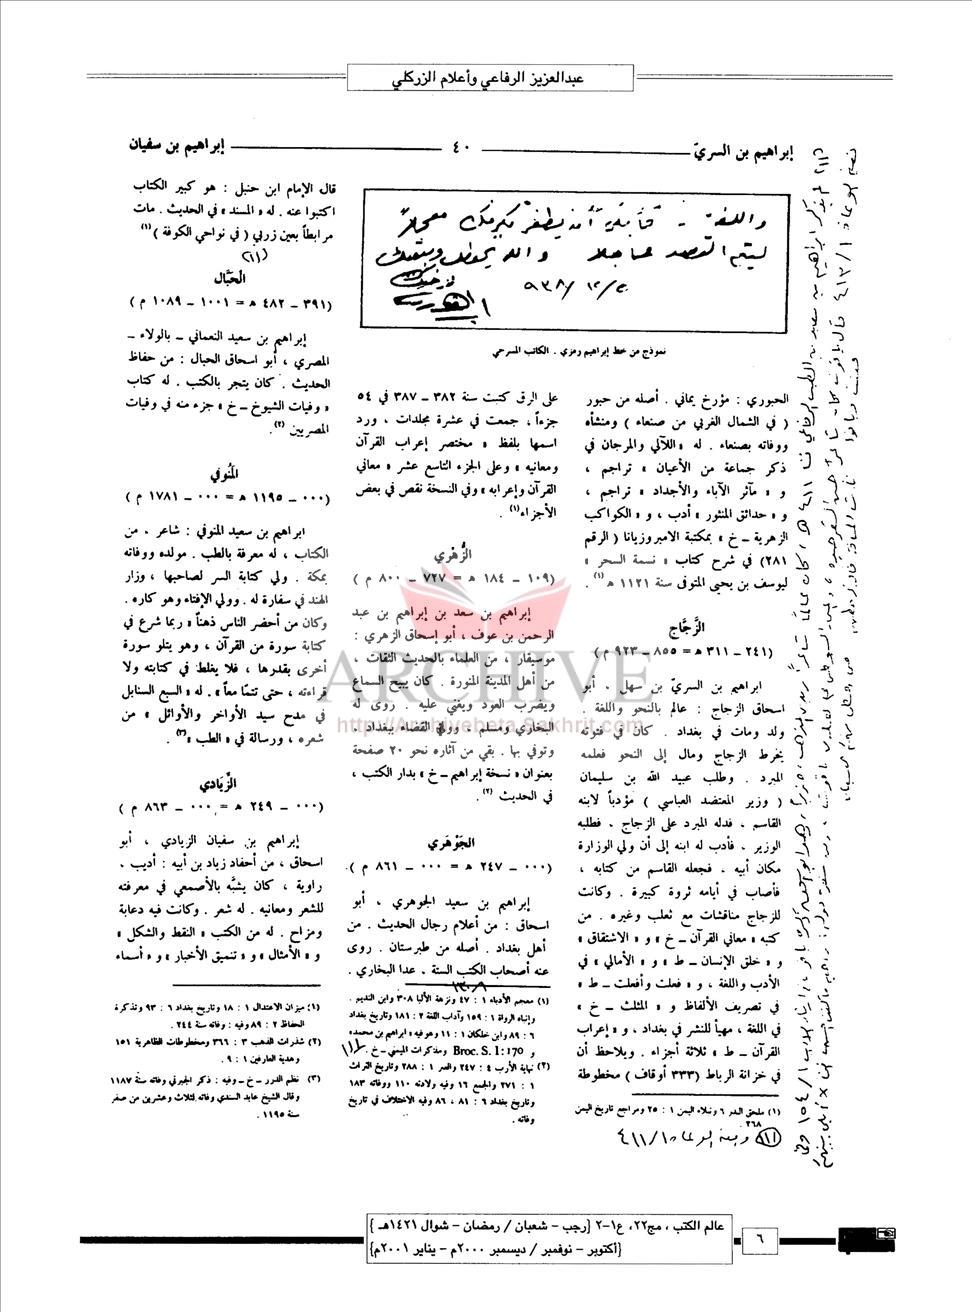 عبدالعزيز الرفاعي وأعلام الزركلي
إبراهيم بن السريّ
٤٠
إبراهيم بن سفيان
نموذج من خط إبراهيم رمزي . الكاتب المسرحي
الحبوري : مؤرخ يماني . أصله من حبور
( في الشمال الغربي من صنعاء ) ومنشأه
ووفاته بصنعاء . له « اللآلي والمرجان في
ذكر جماعة من الأعيان » تراجم ،
و « مآثر الآباء والأجداد » تراجم ،
و « حدائق المنثور » أدب ، و « الكواكب
الزهرية ــ خ » بمكتبة الامبروزيانا ( الرقم
٢٨١) في شرح كتاب « نسمة السحر »
ليوسف بن يحيى المتوفى سنة ١١٢١ هـ (١) .
الزَّجَّاج
(٢٤١ ــ ٣١١ هـ = ٨٥٥ ــ ٩٢٣ م )
ابراهيم بن السريّ بن سهل ، أبو
اسحاق الزجاج : عالم بالنحو واللغة .
ولد ومات في بغداد . كان في فتوته
يخرط الزجاج ومال إلى النحو فعلمه
المبرد . وطلب عبيد الله بن سليمان
( وزير المعتضد العباسي ) مؤدباً لابنه
القاسم ، فدله المبرد على الزجاج . فطلبه
الوزير . فأدب له ابنه إلى أن ولي الوزارة
مكان أبيه . فجعله القاسم من كتابه ،
فأصاب في أيامه ثروة كبيرة . وكانت
للزجاج مناقشات مع ثعلب وغيره . من
كتبه « معاني القرآن ــ خ » و « الاشتقاق »
و « خلق الإنسان ــ ط » و « الأمالي » في
الأدب واللغة ، و « فعلت وأفعلت ــ ط »
في تصريف الألفاظ و « المثلث ــ خ »
في اللغة ، مهيأ للنشر في بغداد ، و « إعراب
القرآن ــ ط » ثلاثة أجزاء . ويلاحظ أن
في خزانة الرباط (٣٣٣ أوقاف ) مخطوطة
(١) ملحق البدر ٦ ونبلاء اليمن ١ : ٢٥ ومراجع تاريخ اليمن
٢٦٨ .
على الرق كتبت سنة ٣٨٢ ــ ٣٨٧ في ٥٤
جزءاً ، جمعت في عشرة مجلدات ، ورد
اسمها بلفظ « مختصر إعراب القرآن
ومعانيه » وعلى الجزء التاسع عشر « معاني
القرآن وإعرابه » وفي النسخة نقص في بعض
الأجزاء (١) .
الزُّهْري
(١٠٩ ــ ١٨٤ هـ = ٧٢٧ ــ ٨٠٠ م )
إبراهيم بن سعد بن إبراهيم بن عبد
الرحمن بن عوف ، أبو إسحاق الزهري :
موسيقار ، من العلماء بالحديث الثقات ،
من أهل المدينة المنورة . كان يبيح السماع
ويضرب العود ويغني عليه . روى له
البخاري ومسلم ، وولي القضاء ببغداد .
وتوفي بها . بقي من آثاره نحو ٢٠ صفحة
بعنوان « نسخة إبراهيم ــ خ » بدار الكتب ،
في الحديث (٢) .
الجَوْهَري
(٠٠٠ ــ ٢٤٧ هـ = ٠٠٠ ــ ٨٦١ م )
إبراهيم بن سعيد الجوهري ، أبو
اسحاق : من أعلام رجال الحديث . من
أهل بغداد . أصله من طبرستان . روى
عنه أصحاب الكتب الستة . عدا البخاري .
(١) معجم الأدباء ١ : ٤٧ ونزهة الألبا ٣٠٨ وابن النديم .
وإنباه الرواة ١ : ١٥٩ وآداب اللغة ٢ : ١٨١ وتاريخ بغداد
٦ : ٨٩ وابن خلكان ١ : ١١ وهو فيه « ابراهيم بن محمد »
و Broc. S. I: 170 ومذكرات الميمني ــ خ .
(٢) نهاية الأرب ٤ : ٢٤٧ والعبر ١ : ٢٨٨ وتاريخ التراث
١ : ٢٧١ والجمع ١٦ وفيه ولادته ١١٠ ووفاته ١٨٣
وتاريخ بغداد ٦ : ٨١ ، ٨٦ وفيه الاختلاف في تاريخ
وفاته .
قال الإمام ابن حنبل : هو كبير الكتاب
اكتبوا عنه . له « المسند » في الحديث . مات
مرابطاً بعين زربى ( في نواحي الكوفة ) (١)
الحَبَّال
(٣٩١ ــ ٤٨٢ هـ = ١٠٠١ ــ ١٠٨٩ م )
إبراهيم بن سعيد النعماني ــ بالولاء ــ
المصري ، أبو اسحاق الحبال : من حفاظ
الحديث . كان يتجر بالكتب . له كتاب
« وفيات الشيوخ ــ خ » جزء منه في وفيات
المصريين (٢) .
المَنُوفي
(٠٠٠ ــ ١١٩٥ هـ = ٠٠٠ ــ ١٧٨١ م )
ابراهيم بن سعيد المنوفي : شاعر ، من
الكتاب ، له معرفة بالطب . مولده ووفاته
بمكة . ولي كتابة السر لصاحبها ، وزار
الهند في سفارة له . وولي الإفتاء وهو كاره .
وكان من أحضر الناس ذهناً « ربما شرع في
كتابة سورة من القرآن ، وهو يتلو سورة
أخرى بقدرها ، فلا يغلط في كتابته ولا
قراءته ، حتى تتمّا معاً » . له « السبع السنابل
في مدح سيد الأواخر والأوائل » من
شعره ، ورسالة في « الطب » (٣) .
الزِّيادي
(٠٠٠ ــ ٢٤٩ هـ = ٠٠٠ ــ ٨٦٣ م )
إبراهيم بن سفيان الزيادي ، أبو
اسحاق ، من أحفاد زياد بن أبيه : أديب .
راوية ، كان يشبَّه بالأصمعي في معرفته
للشعر ومعانيه . له شعر . وكانت فيه دعابة
ومزاح . له من الكتب « النقط والشكل »
و « الأمثال » و « تنميق الأخبار » و « أسماء
(١) ميزان الاعتدال ١ : ١٨ وتاريخ بغداد ٦ : ٩٣ وتذكرة
الحفاظ ٢ : ٨٩ وفيه : وفاته سنة ٢٤٤ .
(٢) شذرات الذهب ٣ : ٣٦٦ ومخطوطات الظاهرية ١٥١
وهدية العارفين ١ : ٩ .
(٣) نظم الدرر ــ خ ــ وفيه : ذكر الجبرتي وفاته سنة ١١٨٧
وقال الشيخ عابد السندي وفاته لثلاث وعشرين من صفر
سنة ١١٩٥ .
ARCHIVE
http://Archivebeta.Sakhrit.com
عالم الكتب ، مج٢٢، ع١-٢ {رجب - شعبان / رمضان - شوال ١٤٢١هـ }
{أكتوبر - نوفمبر / ديسمبر ٢٠٠٠م - يناير ٢٠٠١م}
٦